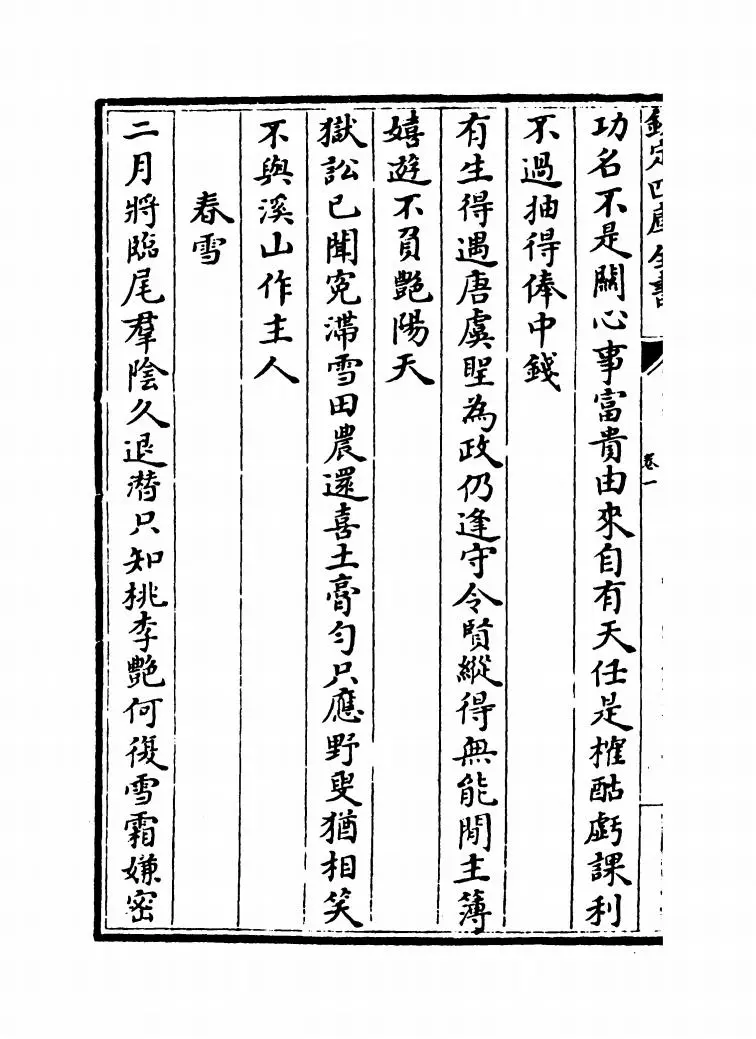 欽定四庫全書
卷一
功名不是關心事富貴由來自有天任是榷酤虧課利
不過抽得俸中錢
有生得遇唐虞聖為政仍逢守令賢縱得無能閒主簿
嬉遊不負艷陽天
獄訟已聞寃滯雪田農還喜土膏勻只應野叟猶相笑
不與溪山作主人
春雪
二月將臨尾羣陰久退潛只知桃李艷何復雪霜嫌密